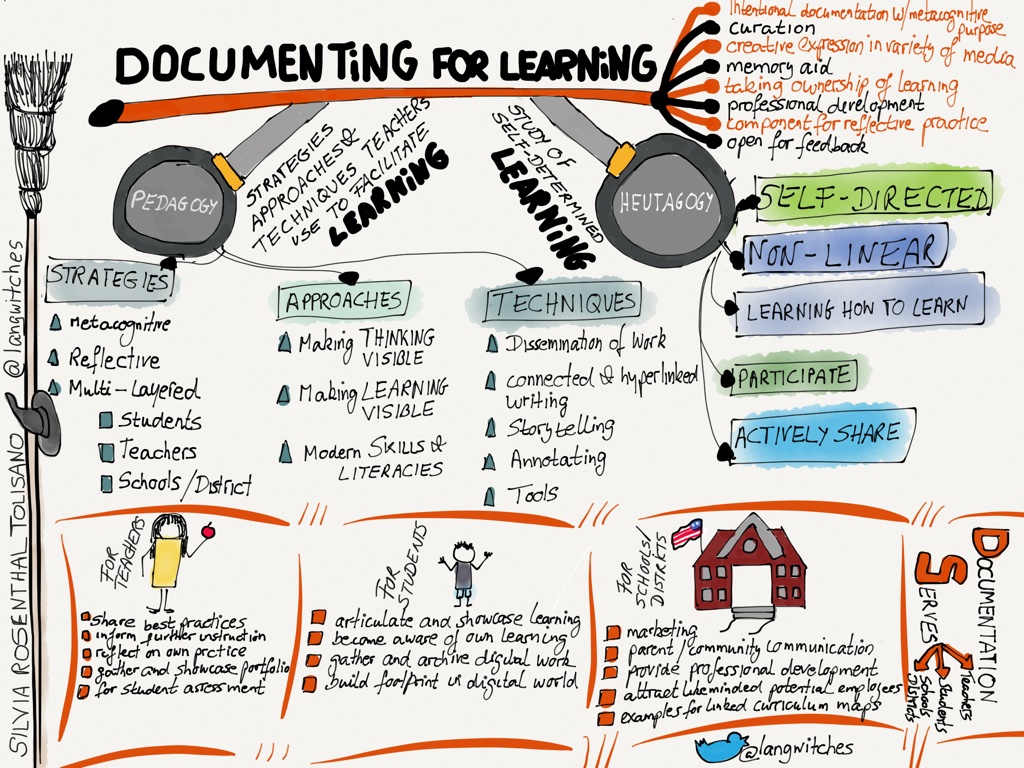 DOCUMENTING FOR LEARNING
Intentional documentation w/metacognitive
purpose
curation
creative expression in variety of media
memory aid
taking ownership of learning
professional development
component for reflective practice
open for feedback
PEDAGOGY
STRATEGIES
APPROACHES &
TECHNIQUES TEACHERS
USE TO FACILITATE
LEARNING
STUDY OF
SELF-DETERMINED
LEARNING
HEUTAGOGY
SELF-DIRECTED
NON-LINEAR
LEARNING HOW TO LEARN
PARTICIPATE
ACTIVELY SHARE
STRATEGIES
Metacognitive
Reflective
Multi-Layered
Students
Teachers
Schools/District
APPROACHES
Making THINKING
VISIBLE
Making LEARNING
VISIBLE
Modern SKILLS &
LITERACIES
TECHNIQUES
Dissemination of Work
connected & hyperlinked
writing
Storytelling
Annotating
Tools
FOR
TEACHERS
share best practices
inform further instruction
reflect on own prctice
gather and showcase portfolio
for student assessment
FOR
STUDENTS
articulate and showcase learning
become aware of own learning
gather and archive digital work
build footprint in digital world
FOR
SCHOOLS/
DISTRICTS
marketing
parent/community communication
provide professional development
attract likeminded potential employees
examples for linked curriculum maps
DOCUMENTATION
SERVES
Teachers
Students
Schools
Districts
@langwitches
SILVIA ROSENTHAL TOLISANO @langwitches